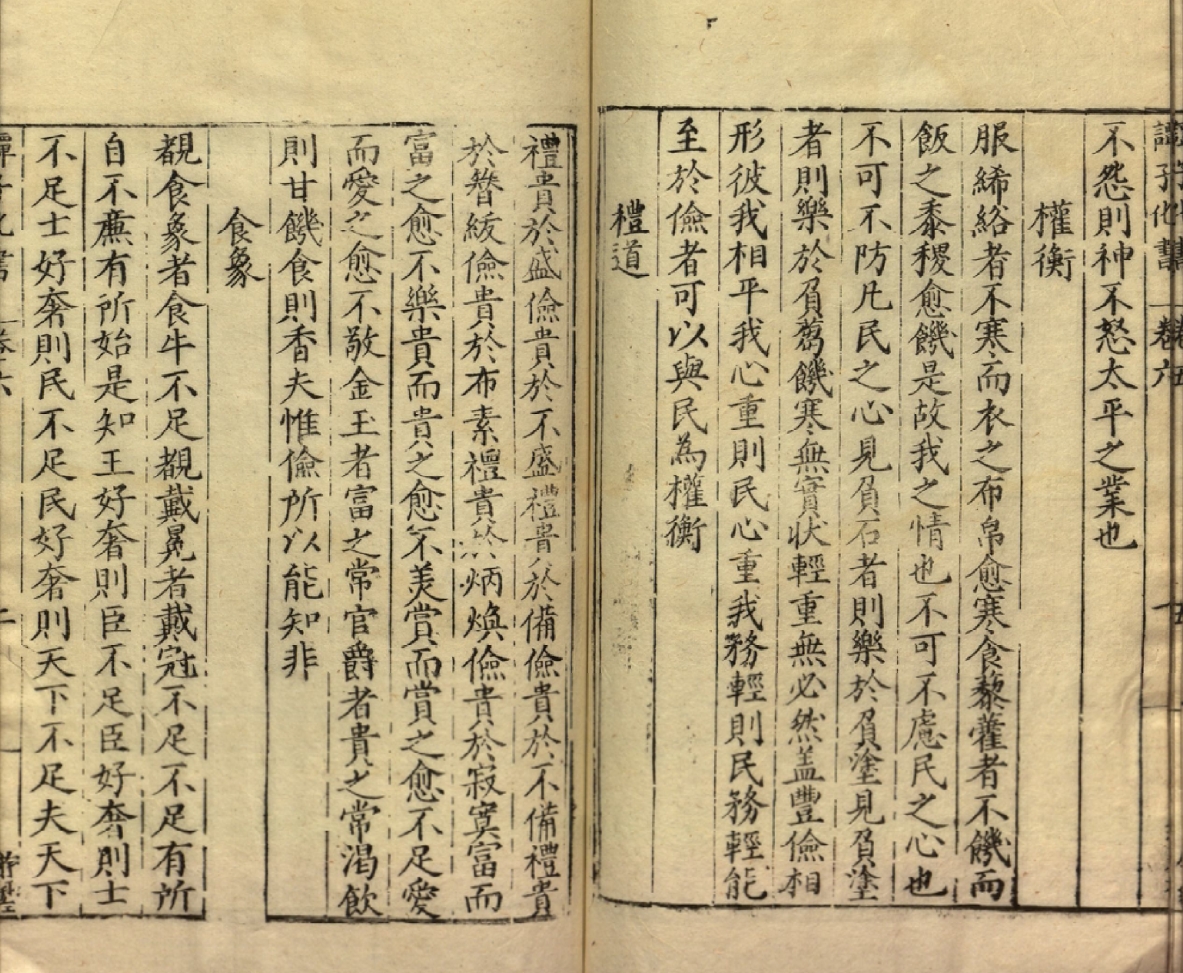 譚子化書 卷六 五
不怨則神不怒太平之業也
權衡
服絺綌者不寒而衣之布帛愈寒食藜藿者不饑而
飯之黍稷愈饑是故我之情也不可不慮民之心也
不可不防凡民之心見負石者則樂於負塗見負塗
者則樂於負蒭饑寒無實狀輕重無必然盖豐儉相
形彼我相平我心重則民心重我務輕則民務輕能
至於儉者可以與民為權衡
禮道
禮貴於盛儉貴於不盛禮貴於備儉貴於不備禮貴
於簪紱儉貴於布素禮貴於炳煥儉貴於寂寞富而
富之愈不樂貴而貴之愈不美賞而賞之愈不足愛
而愛之愈不敬金玉者富之常官爵者貴之常渴飲
則甘饑食則香夫惟儉所以能知非
食象
覩食象者食牛不足覩戴冕者戴冠不足不足有所
自不廉有所始是知王好奢則臣不足臣好奢則士
不足士好奢則民不足民好奢則天下不足夫天下
譚子化書 卷六